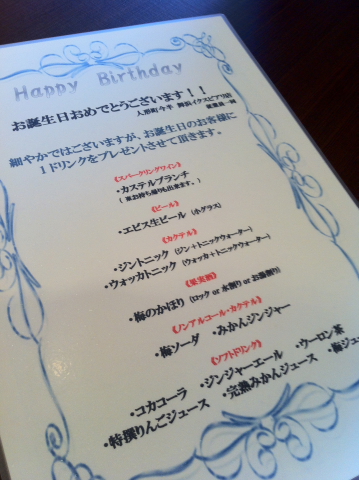 Happy Birthday
お誕生日おめでとうございます！！
人形町今半 舞浜イクスピアリ店
従業員一同
細やかではございますが、お誕生日のお客様に
１ドリンクをプレゼントさせて頂きます。
《スパークリングワイン》
・カステルブランチ
（お持ち帰りも出来ます。）
《ビール》
・エビス生ビール（小グラス）
《カクテル》
・ジントニック（ジン＋トニックウォーター）
・ウォッカトニック（ウォッカ＋トニックウォーター）
《果実酒》
・梅のかほり（ロック or 水割り or お湯割り）
《ノンアルコール・カクテル》
・梅ソーダ ・みかんジンジャー
《ソフトドリンク》
・コカコーラ ・ジンジャーエール ・ウーロン茶
・特撰りんごジュース ・完熟みかんジュース ・梅ジュー